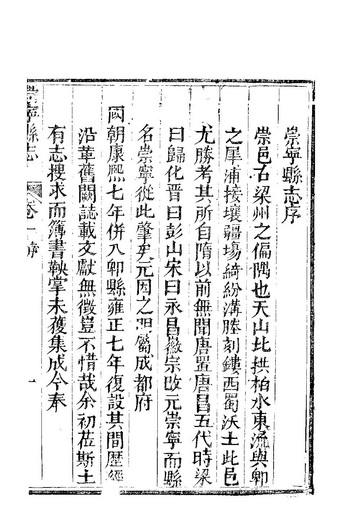 崇寧縣志序
崇邑古梁州之偏隅也天山比拱柏水東流與郫
之犀浦接壤疆場綺紛溝塍刻鏤西蜀沃土此邑
尤勝考其所自隋以前無聞唐置唐昌五代時梁
曰歸化晉曰彭山宋曰永昌徽宗改元崇寧而縣
名崇寧從此肇矣元因之明屬成都府
國朝康熙七年併入郫縣雍正七年復設其間歷經
沿革舊闕誌載文獻無徵豈不惜哉余初莅斯土
有志搜求而簿書鞅掌未獲集成今奉
崇寧縣志
卷一 序
一